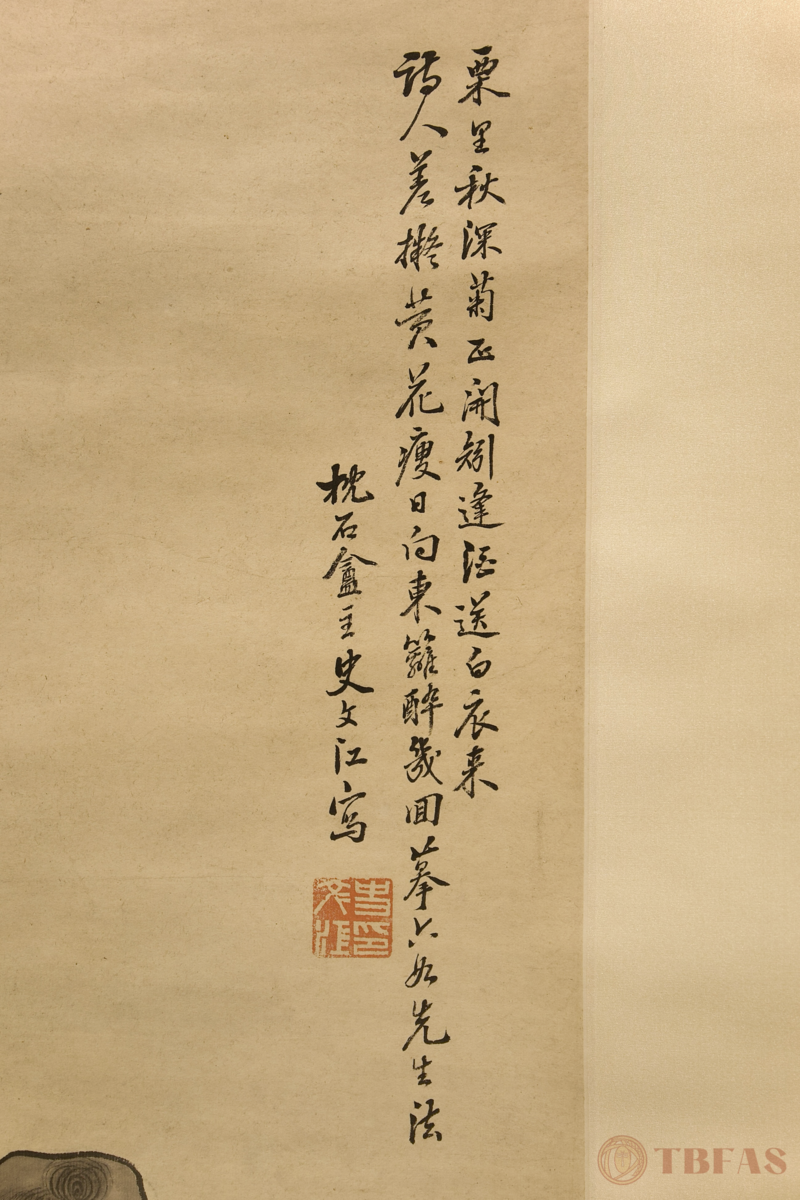 栗里秋深菊正開矧逢酒送白衣来
詩人差擬黄花瘦日向東籬醉幾回摹六如先生法
枕石盦主史文江寫
史文江印
TBFAS